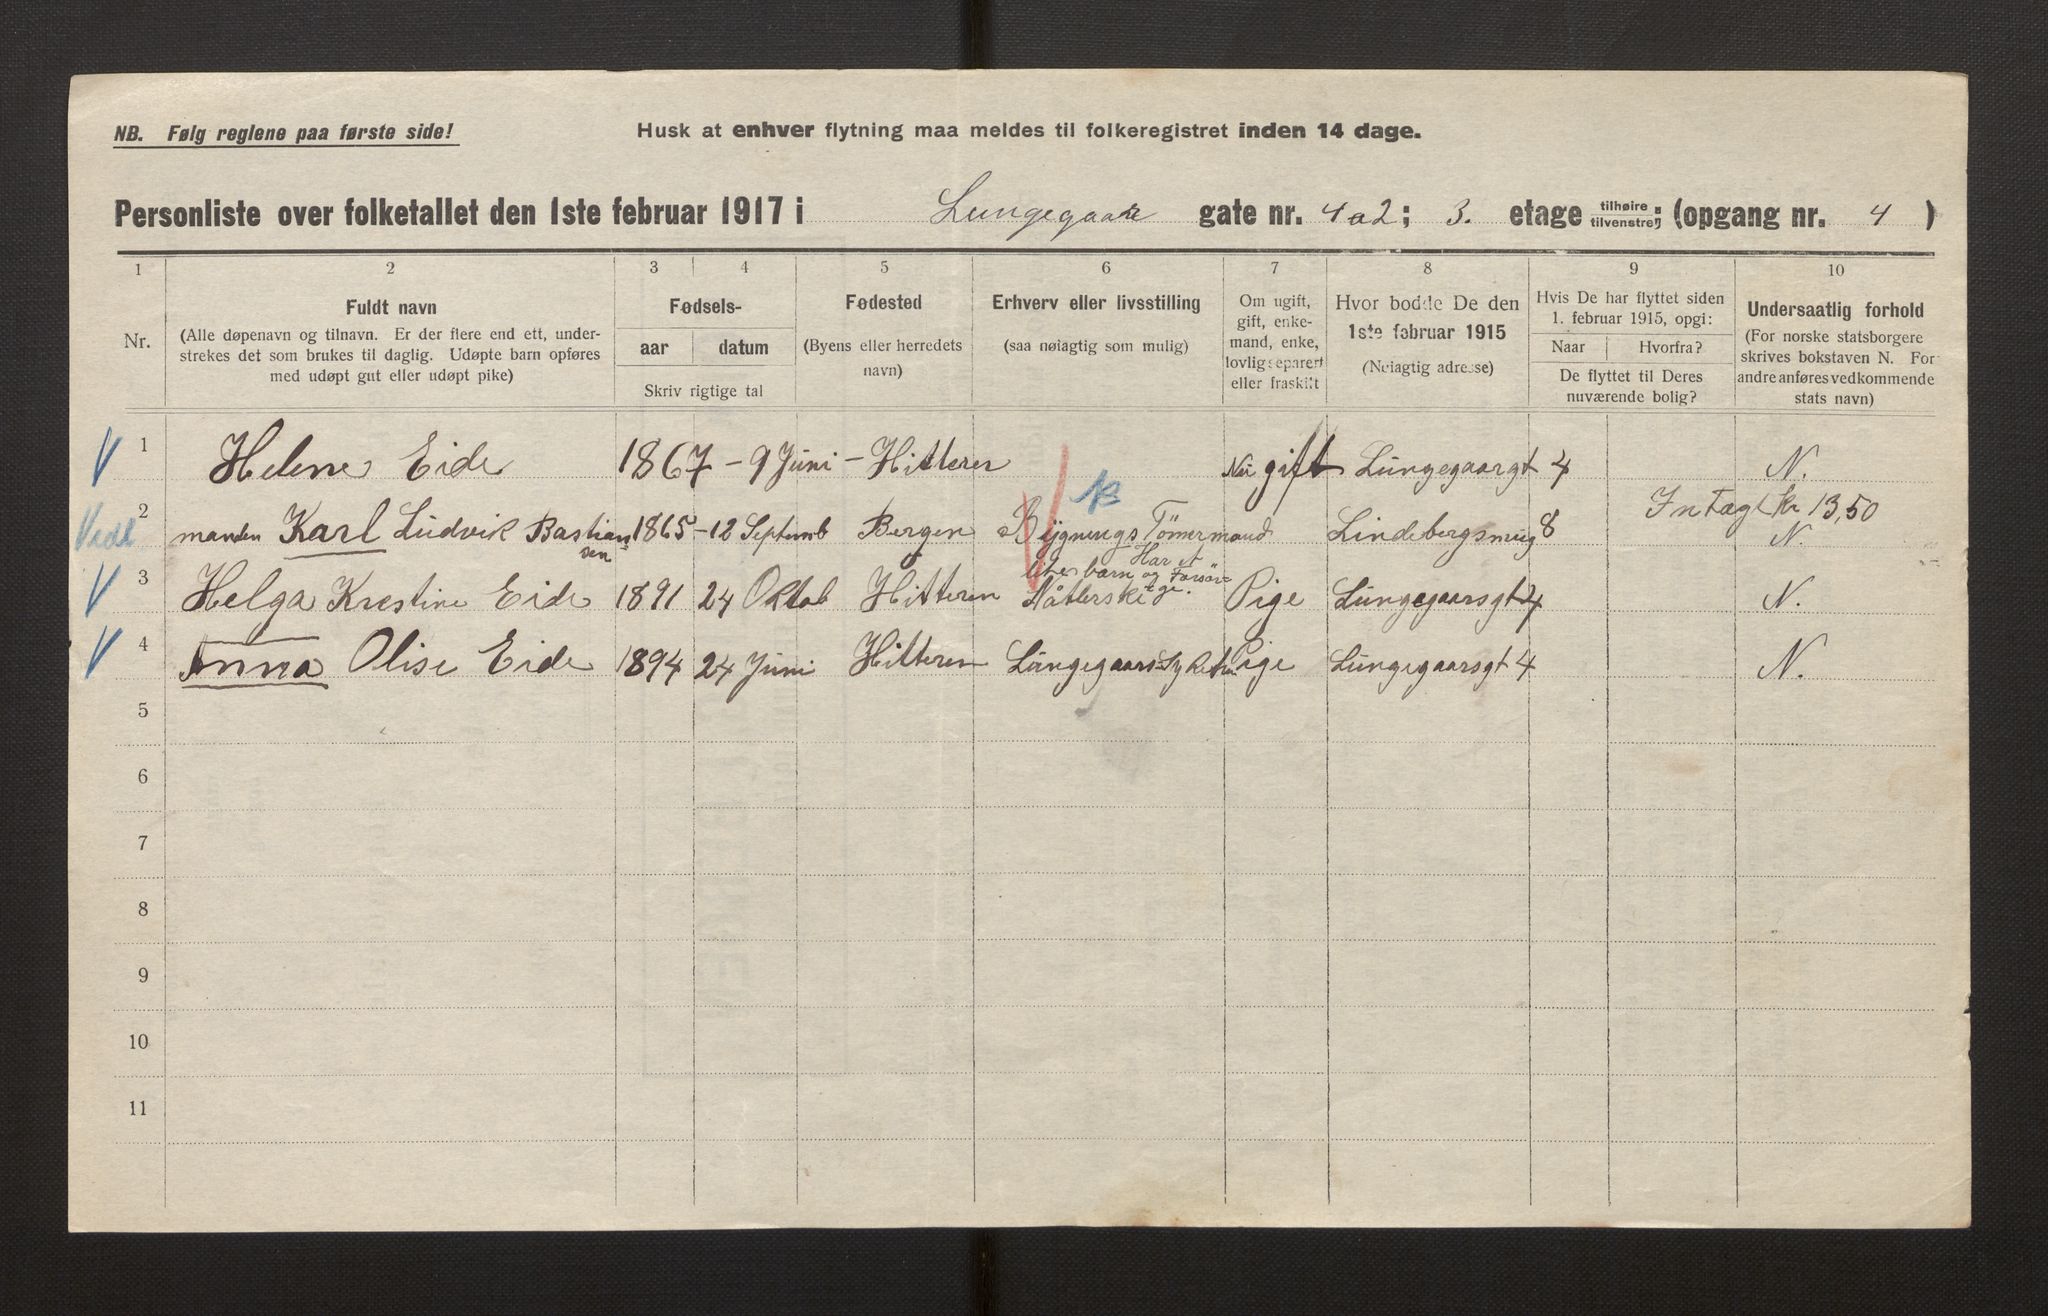 NB. Følg reglene paa første side!
Husk at enhver flytning maa meldes til folkeregistret inden 14 dage.
Personliste over folketallet den 1ste februar 1917 i Lungegaards gate nr. 4a2; 3. etage tilhøire tilvenstre; (opgang nr. 4)
1 2 3 4 5 6 7 8 9 10
Nr.
Fuldt navn
(Alle døpenavn og tilnavn. Er der flere end ett, under-
strekes det som brukes til daglig. Udøpte barn opføres
med udøpt gut eller udøpt pike)
Fødsels-
aar datum
Skriv rigtige tal
Fødested
(Byens eller herredets
navn)
Erhverv eller livsstilling
(saa nøiagtig som mulig)
Om ugift,
gift, enke-
mand, enke,
lovlig separert
eller fraskilt
Hvor bodde De den
1ste februar 1915
(Nøiagtig adresse)
Hvis De har flyttet siden
1. februar 1915, opgi:
Naar Hvorfra?
De flyttet til Deres
nuværende bolig?
Undersaatlig forhold
(For norske statsborgere
skrives bokstaven N. For
andre anføres vedkommende
stats navn)
V 1 Helene Eide 1867 - 9 Juni - Hitteren Nu gift Lungegaargt 4 N.
Intægt kr 13,50
2 manden Karl Ludvik Bastian 1865 - 12 Septemb Bergen Bygnings Tömermand Lindebergsmug 8 N.
sen
Har et
litet barn og Forsör
V 3 Helga Krestine Eide 1891 24 Oktob Hitteren Pige Lungegaarsgt 4 N.
V 4 Anna Olise Eide 1894 24 Juni Hitteren Lungegaars Pige Lungegaarsgt 4 N.
5
6
7
8
9
10
11